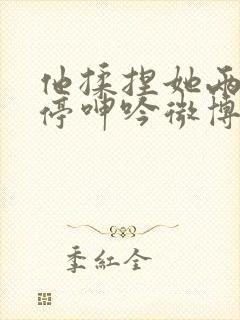 他揉捏她两
停呻吟微博
季红全